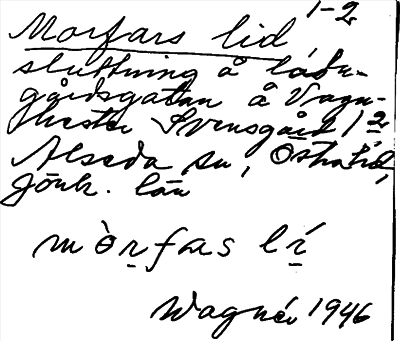 Morfars lid 1-2
sluttning å ladu-
gårdsgatan å Vagn-
hester Svensgård 1 2
Alseda sn, Östra hd,
Jönk. län
mòrfas lí
Wagnér 1946